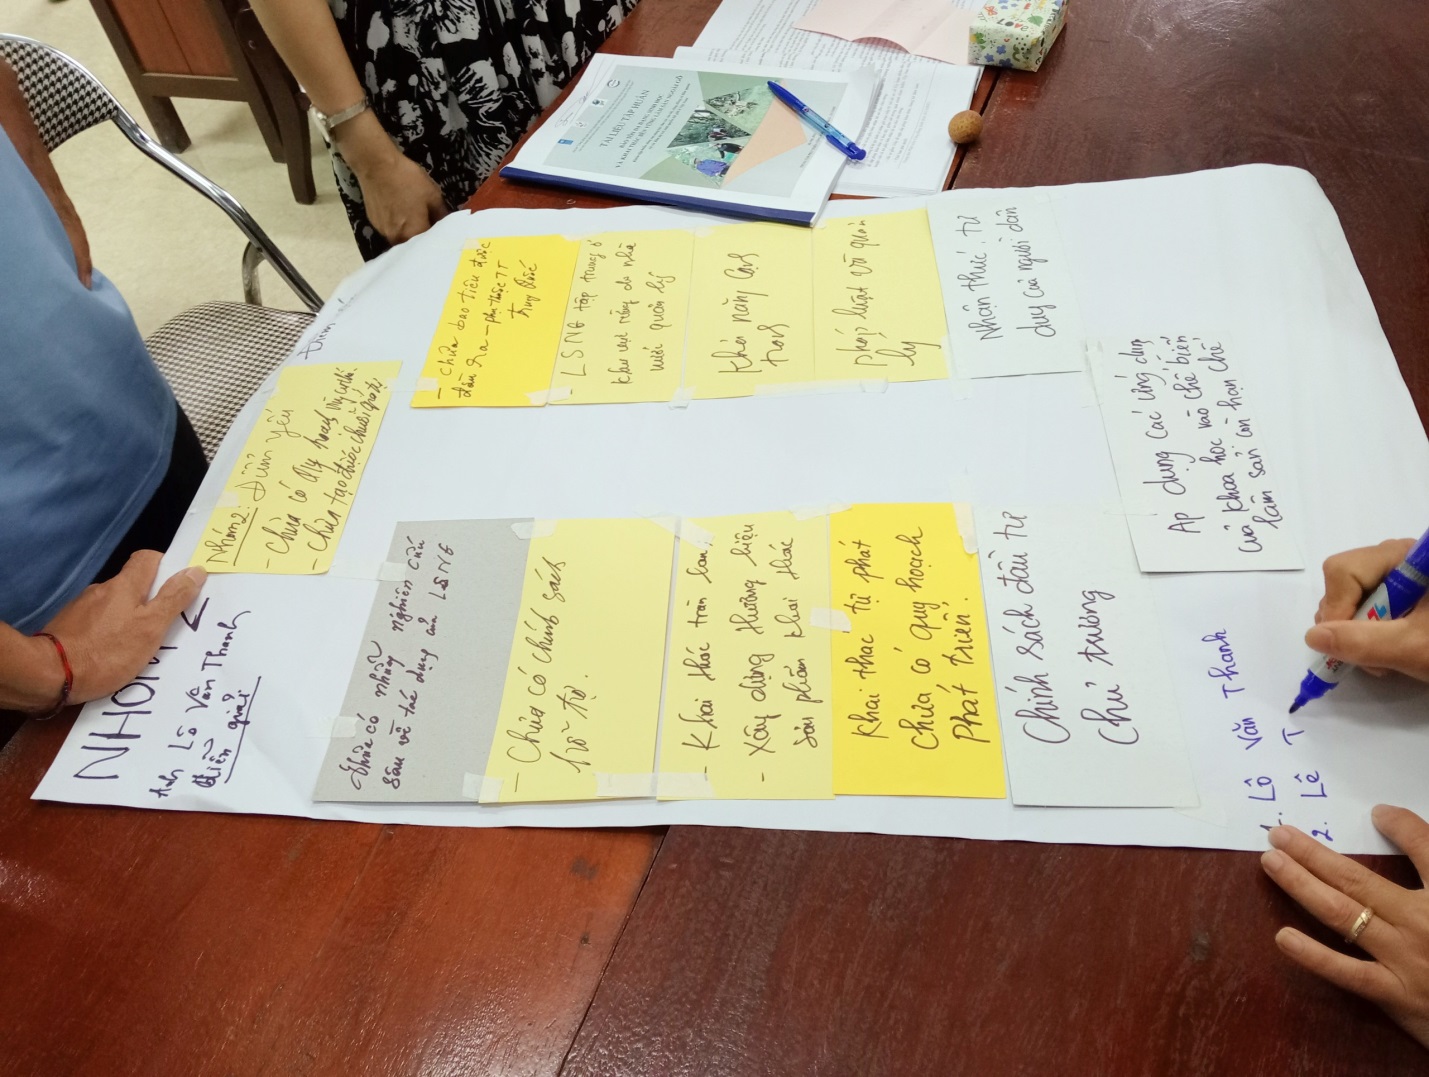 NHÓM 2
Anh Lô Văn Thanh
diễn giải
Nhóm 2: Điểm yếu
- Chưa có
- Chưa tạo được chuỗi
- Chưa bao tiêu được
đầu ra - phụ thuộc TT
Trung Quốc
LSNG tập trung ở
khu vực rừng do nhà
nước quản lý
Khả năng cạnh
tranh
pháp luật và quản
lý
Nhận thức, tư
duy của người dân
Áp dụng các ứng dụng
của khoa học vào chế biến
lâm sản còn hạn chế
Chưa có những nghiên cứu
sâu về tác dụng của LSNG
- Chưa có chính sách
hỗ trợ.
- Khai thác tràn lan,
- Xây dựng thương hiệu
sản phẩm khai thác
Khai thác tự phát
chưa có quy hoạch
phát triển.
Chính sách đầu tư
chủ trương
1. Lô Văn Thanh
2. Lê T
TÀI LIỆU TẬP HUẤN